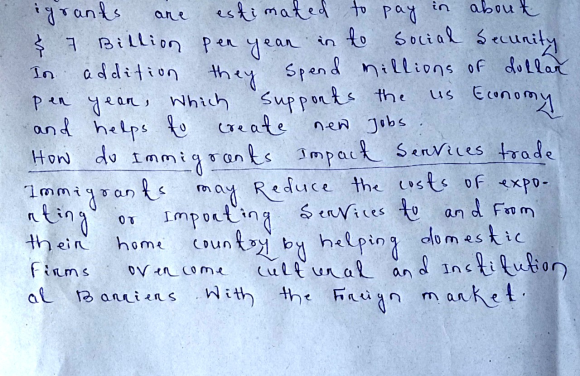 igrants are estimated to pay in about
$ 7 Billion per year in to Social Security
In addition they spend millions of dollar
per year, which supports the us Economy
and helps to create new Jobs.
How do Immigrants Impact Services trade
Immigrants may Reduce the costs of expo-
rting or Importing Services to and From
their home country by helping domestic
Firms overcome cultural and Institution
al Barriers With the Foreign market.